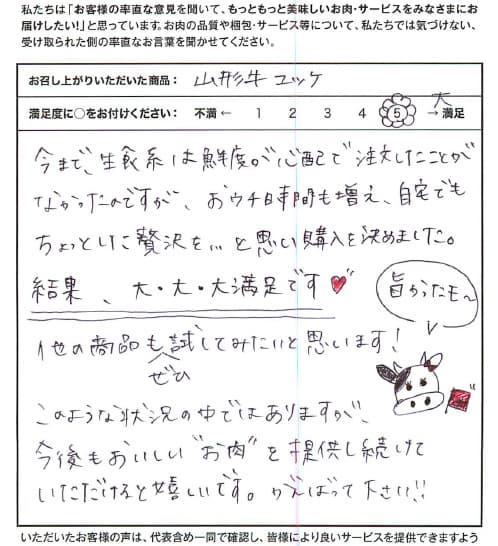 私たちは「お客様の率直な意見を聞いて、もっともっと美味しいお肉・サービスをみなさまにお
届けしたい!」と思っています。お肉の品質や梱包・サービス等について、私たちでは気づけない、
受け取られた側の率直なお言葉を聞かせてください。
お召し上がりいただいた商品： 山形牛ユッケ
満足度に○をお付けください： 不満 ← 1 2 3 4 5 → 大満足
今まで、生食系は鮮度が心配で注文したことが
なかったのですが、おウチ時間も増え、自宅でも
ちょっとした贅沢を…と思い購入を決めました。
結果、大・大・大満足です
旨かったモ〜
他の商品もぜひ試してみたいと思います!
このような状況の中ではありますが、
今後もおいしい"お肉"を提供し続けて
いただけると嬉しいです。がんばって下さい!!
いただいたお客様の声は、代表含め一同で確認し、皆様により良いサービスを提供できますよう